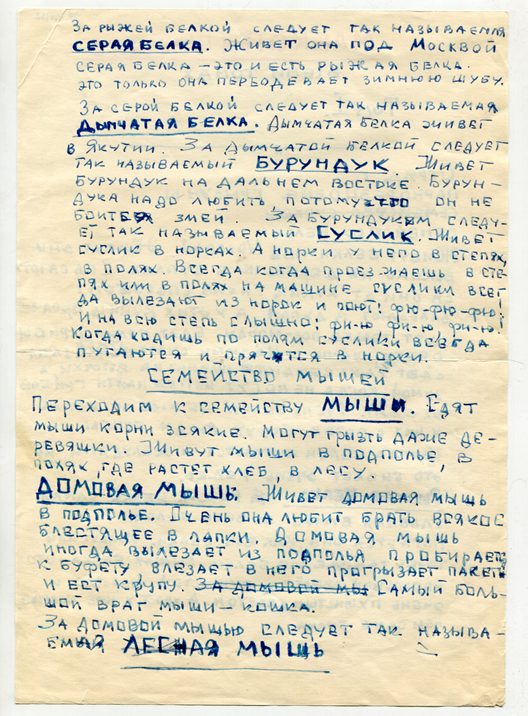 За рыжей белкой следует так называемая
серая белка. Живет она под Москвой
серая белка – это и есть рыжая белка.
это только она переодевает зимнюю шубу.
За серой белкой следует так называемая
дымчатая белка. Дымчатая белка живет
в Якутии. За дымчатой белкой следует
так называемый бурундук. Живет
бурундук на Дальнем Востоке. Бурун-
дука надо любить, потому что он не
боится змей. За бурундуком следу-
ет так называемый суслик. Живет
суслик в норках. А норки у него в степях,
в полях. Всегда когда проезжаешь в сте-
пях или в полях на машине суслики всег-
да вылезают из норок и поют: фю-фю-фю!
И на всю степь слышно: фи-ю фи-ю, фи-ю!
Когда ходишь по полям суслики всегда
пугаются и прячятся в норки.
Семейство мышей
Переходим к семейству мыши. Едят
мыши корни всякие. Могут грызть даже де-
ревяшки. Живут мыши в подполье, в
полях, где растет хлеб, в лесу.
Домовая мышь. Живет домовая мыщь
в подполье. Очень она любит брать всякое
блестящее в лапки. Домовая, мышь
иногда вылезает из подполья пробирает
к буфету влезает в него прогрызает пакет
и ест крупу. За домовой мы Самый боль-
шой враг мыши – кошка.
За домовой мышью следует так называ-
емая лесная мыщь